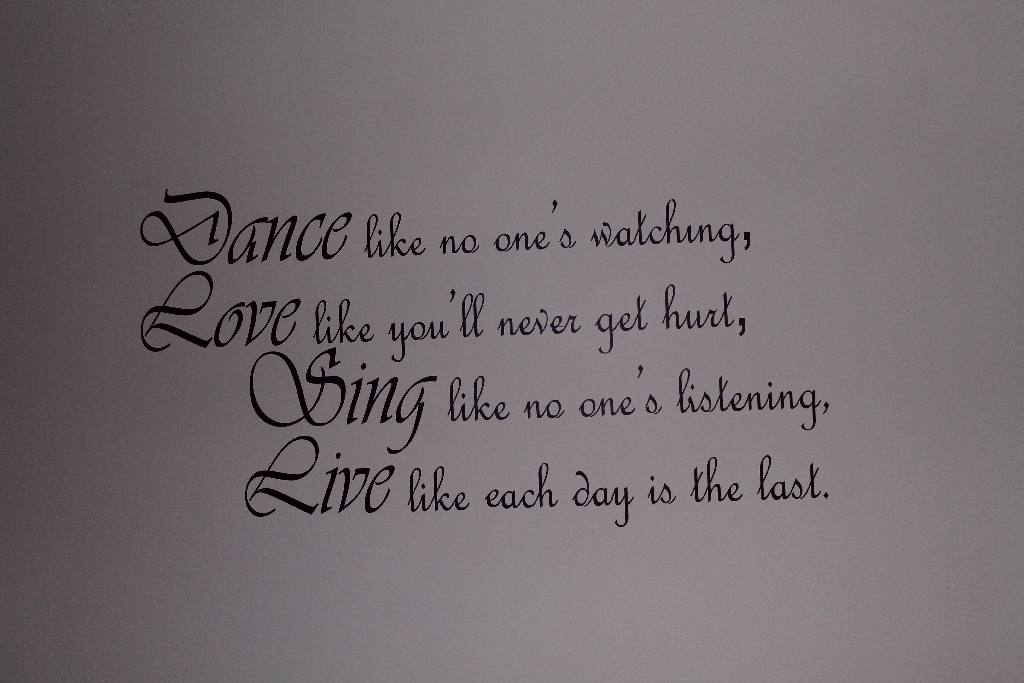 Dance like no one's watching,
Love like you'll never get hurt,
Sing like no one's listening,
Live like each day is the last.